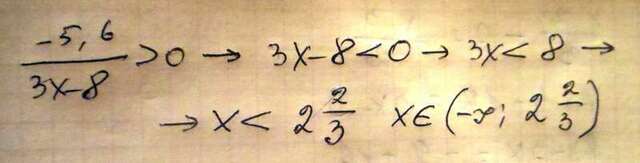 -5,6/(3x-8) > 0 → 3x-8<0 → 3x<8 →
→ x < 2 2/3 x∈(-∞; 2 2/3)